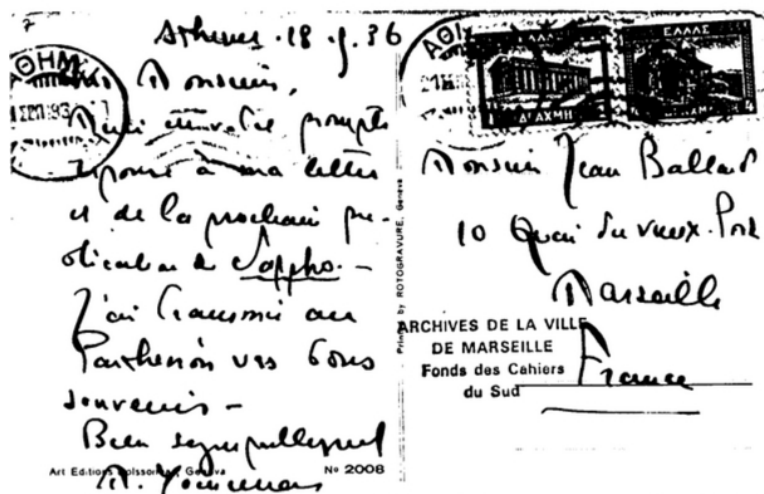 7
Athènes . 18 . 9. 36
ΑΘΗΝ
Monsieur,
Merci de votre prompte
réponse à ma lettre
et de la prochaine pu-
blication de Sappho. -
J'ai transmis au
Parthénon vos bons
souvenirs -
Bien sympathiquement
M. Yourcenar
Art Editions Boissonnas, Geneva Nº 2008
Printed by ROTOGRAVURE, Geneva
ΕΛΛΑΣ
1 ΔΡΑΧΜΗ
4
Monsieur Jean Ballard
10 Quai du vieux-Port
Marseille
France
ARCHIVES DE LA VILLE
DE MARSEILLE
Fonds des Cahiers
du Sud